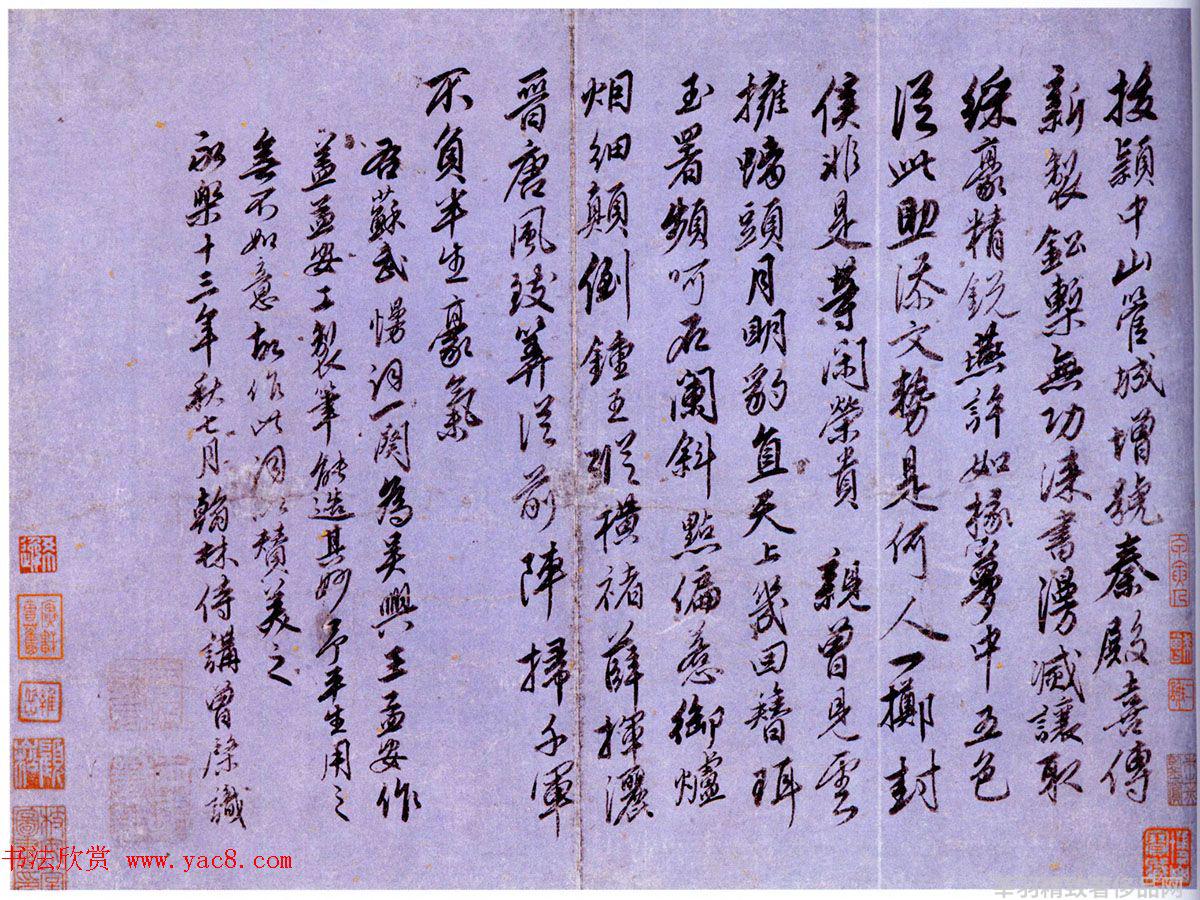 拔穎中山管城增號秦殿喜傳
新製鉛槧無功漆書漫滅讓取
綵豪精銳燕許如椽夢中五色
從此助添文勢是何人一擲封
侯非是等閑榮貴 親曾見雲
擁螭頭月明豹直天上幾回簪珥
玉署頻呵石闌斜點偏惹御爐
烟細顛倒鍾王縱橫褚薛揮灑
晉唐風致算從前陣掃千軍
不負半生豪氣
右蘇武慢詞一闋為吳興王孟安作
蓋孟安工製筆能造其妙予平生用之
無不如意故作此詞以贊美之
永樂十三年秋七月翰林侍講曾棨識
书法欣赏 www.yac8.com